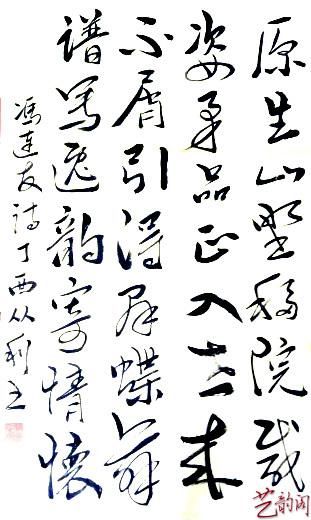 原生山野移院栽
姿柔品正入世来
不屑引得群蝶舞
谱写逸韵寄情怀
馮连友诗丁酉从利书
艺韵阁